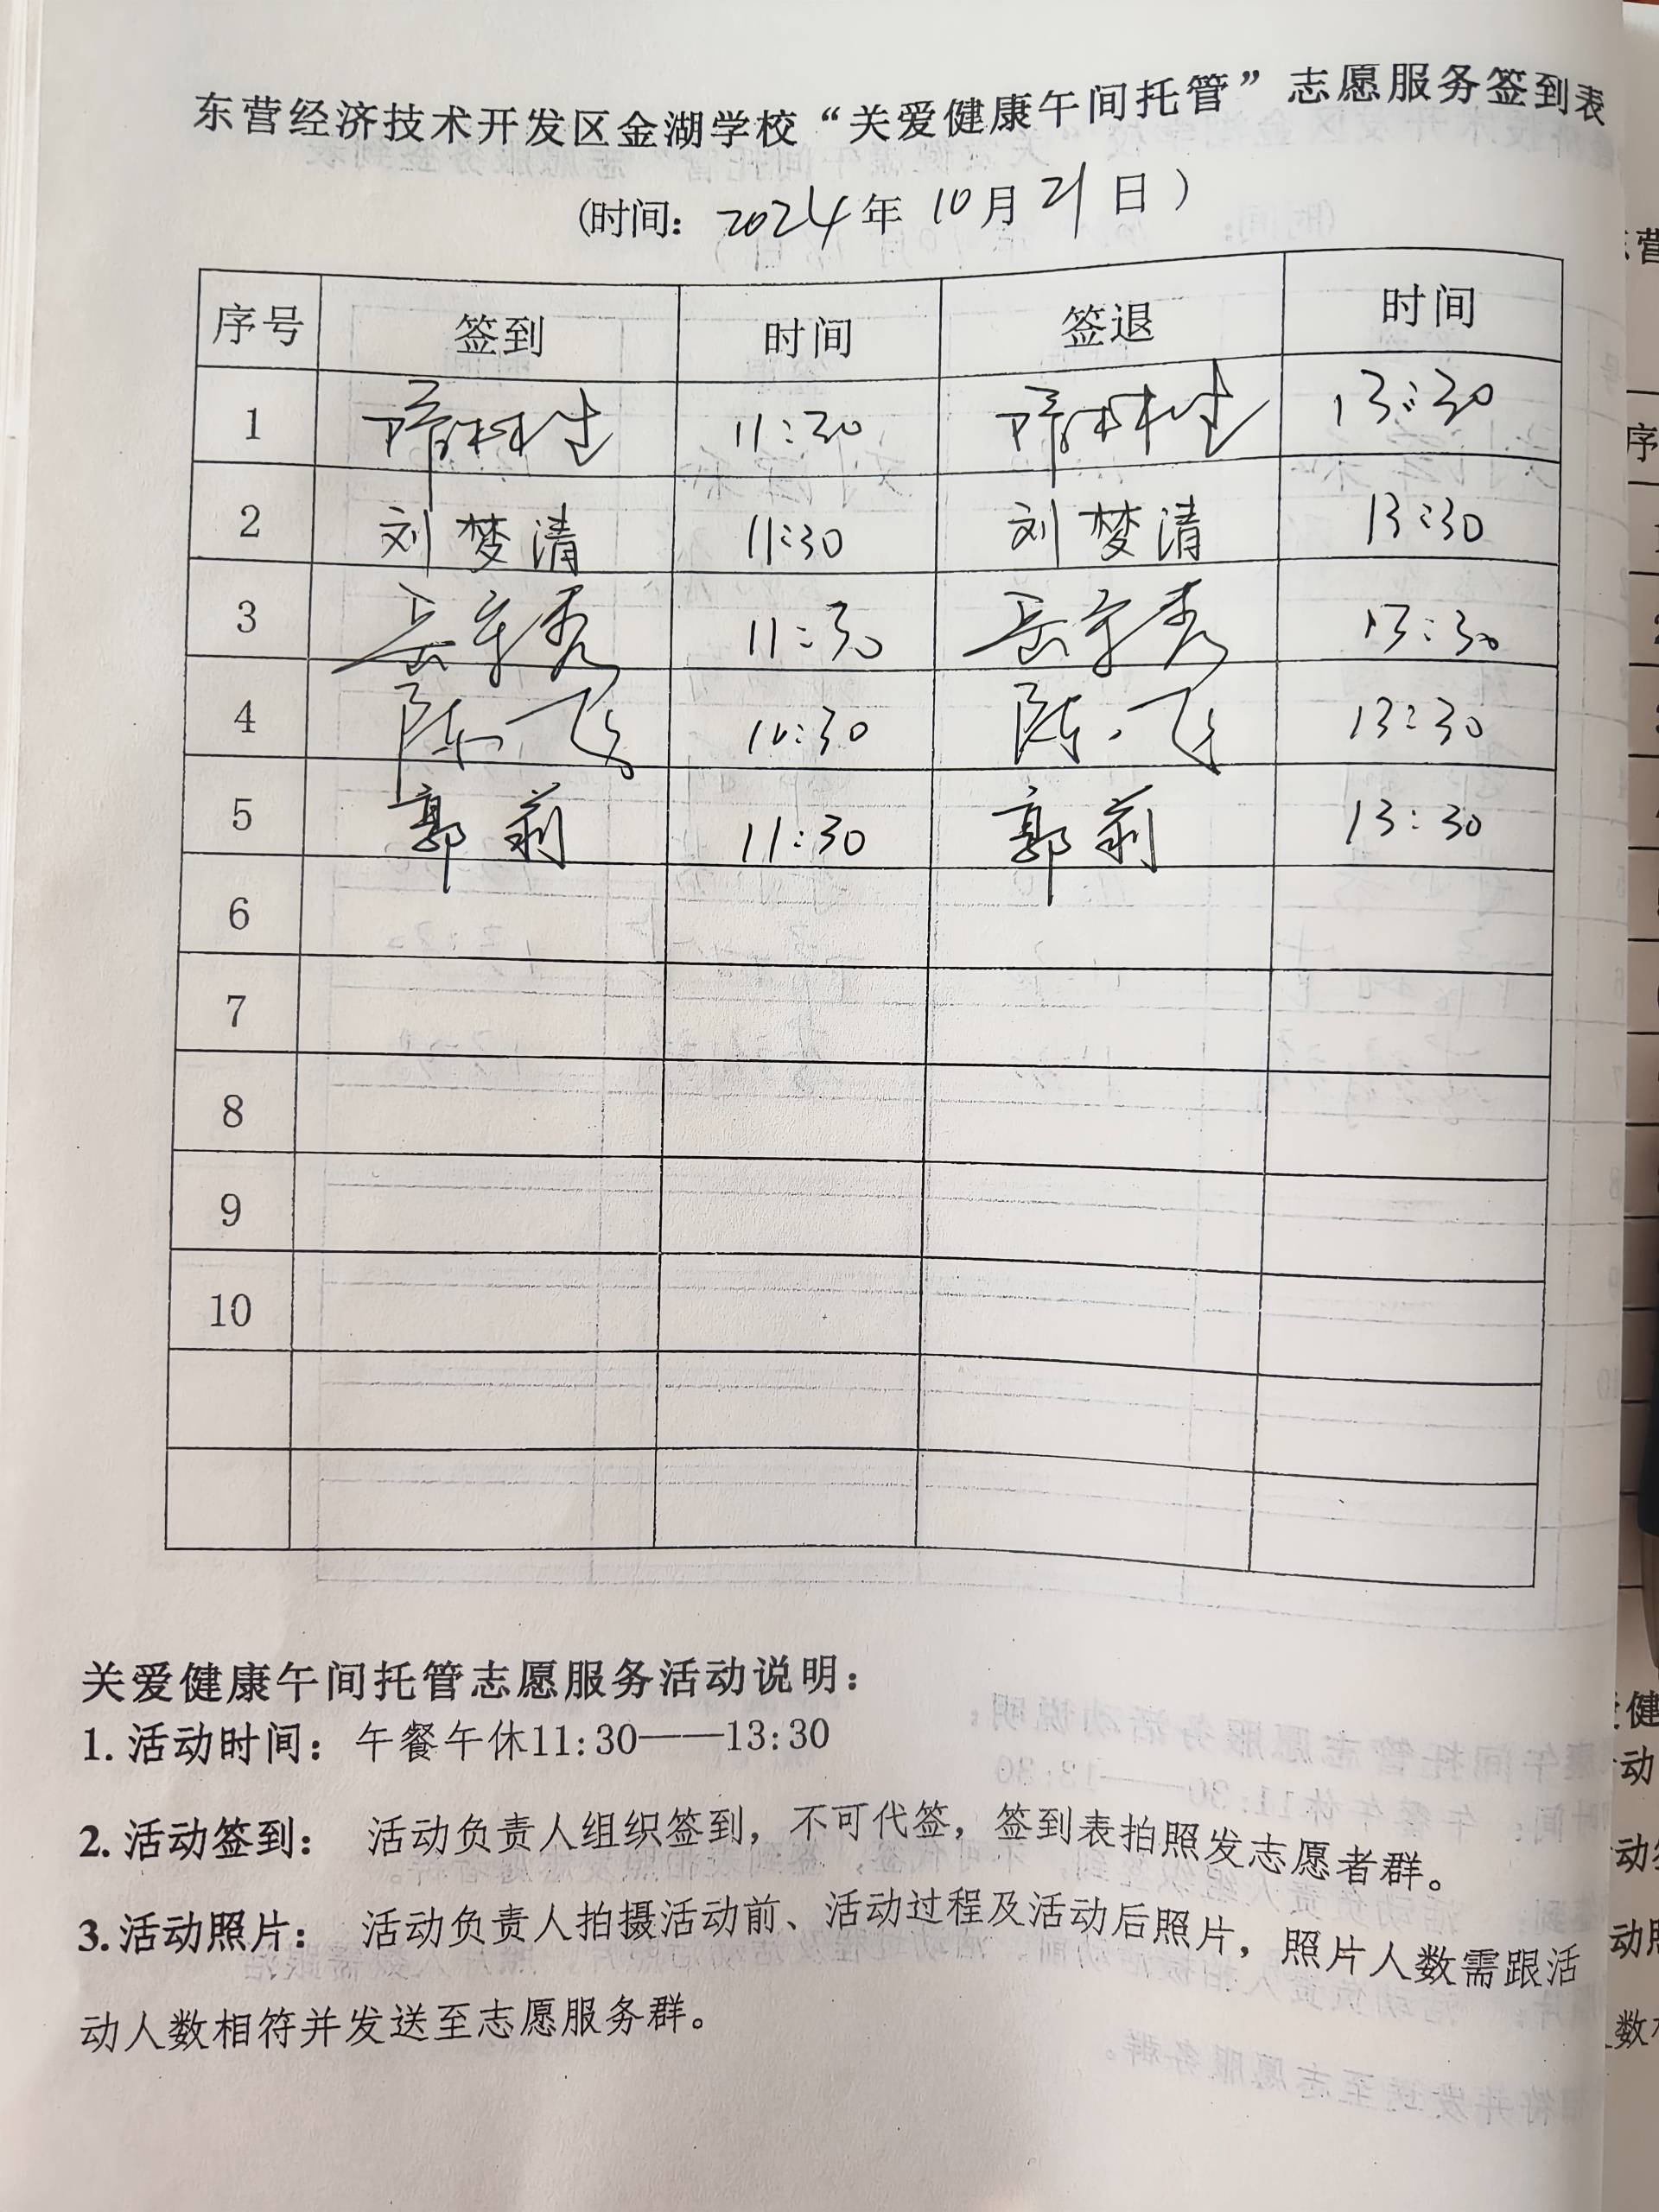 东营经济技术开发区金湖学校“关爱健康午间托管”志愿服务签到表
(时间: 2024年10月21日)
序号 签到 时间 签退 时间
1 11:30 13:30
2 刘梦清 11:30 刘梦清 13:30
3 11:30 13:30
4 陈飞 13:30
5 郭莉 11:30 郭莉 13:30
6
7
8
9
10
关爱健康午间托管志愿服务活动说明:
1.活动时间: 午餐午休11:30——13:30
2.活动签到: 活动负责人组织签到,不可代签,签到表拍照发志愿者群。
3.活动照片: 活动负责人拍摄活动前、活动过程及活动后照片,照片人数需跟活
动人数相符并发送至志愿服务群。